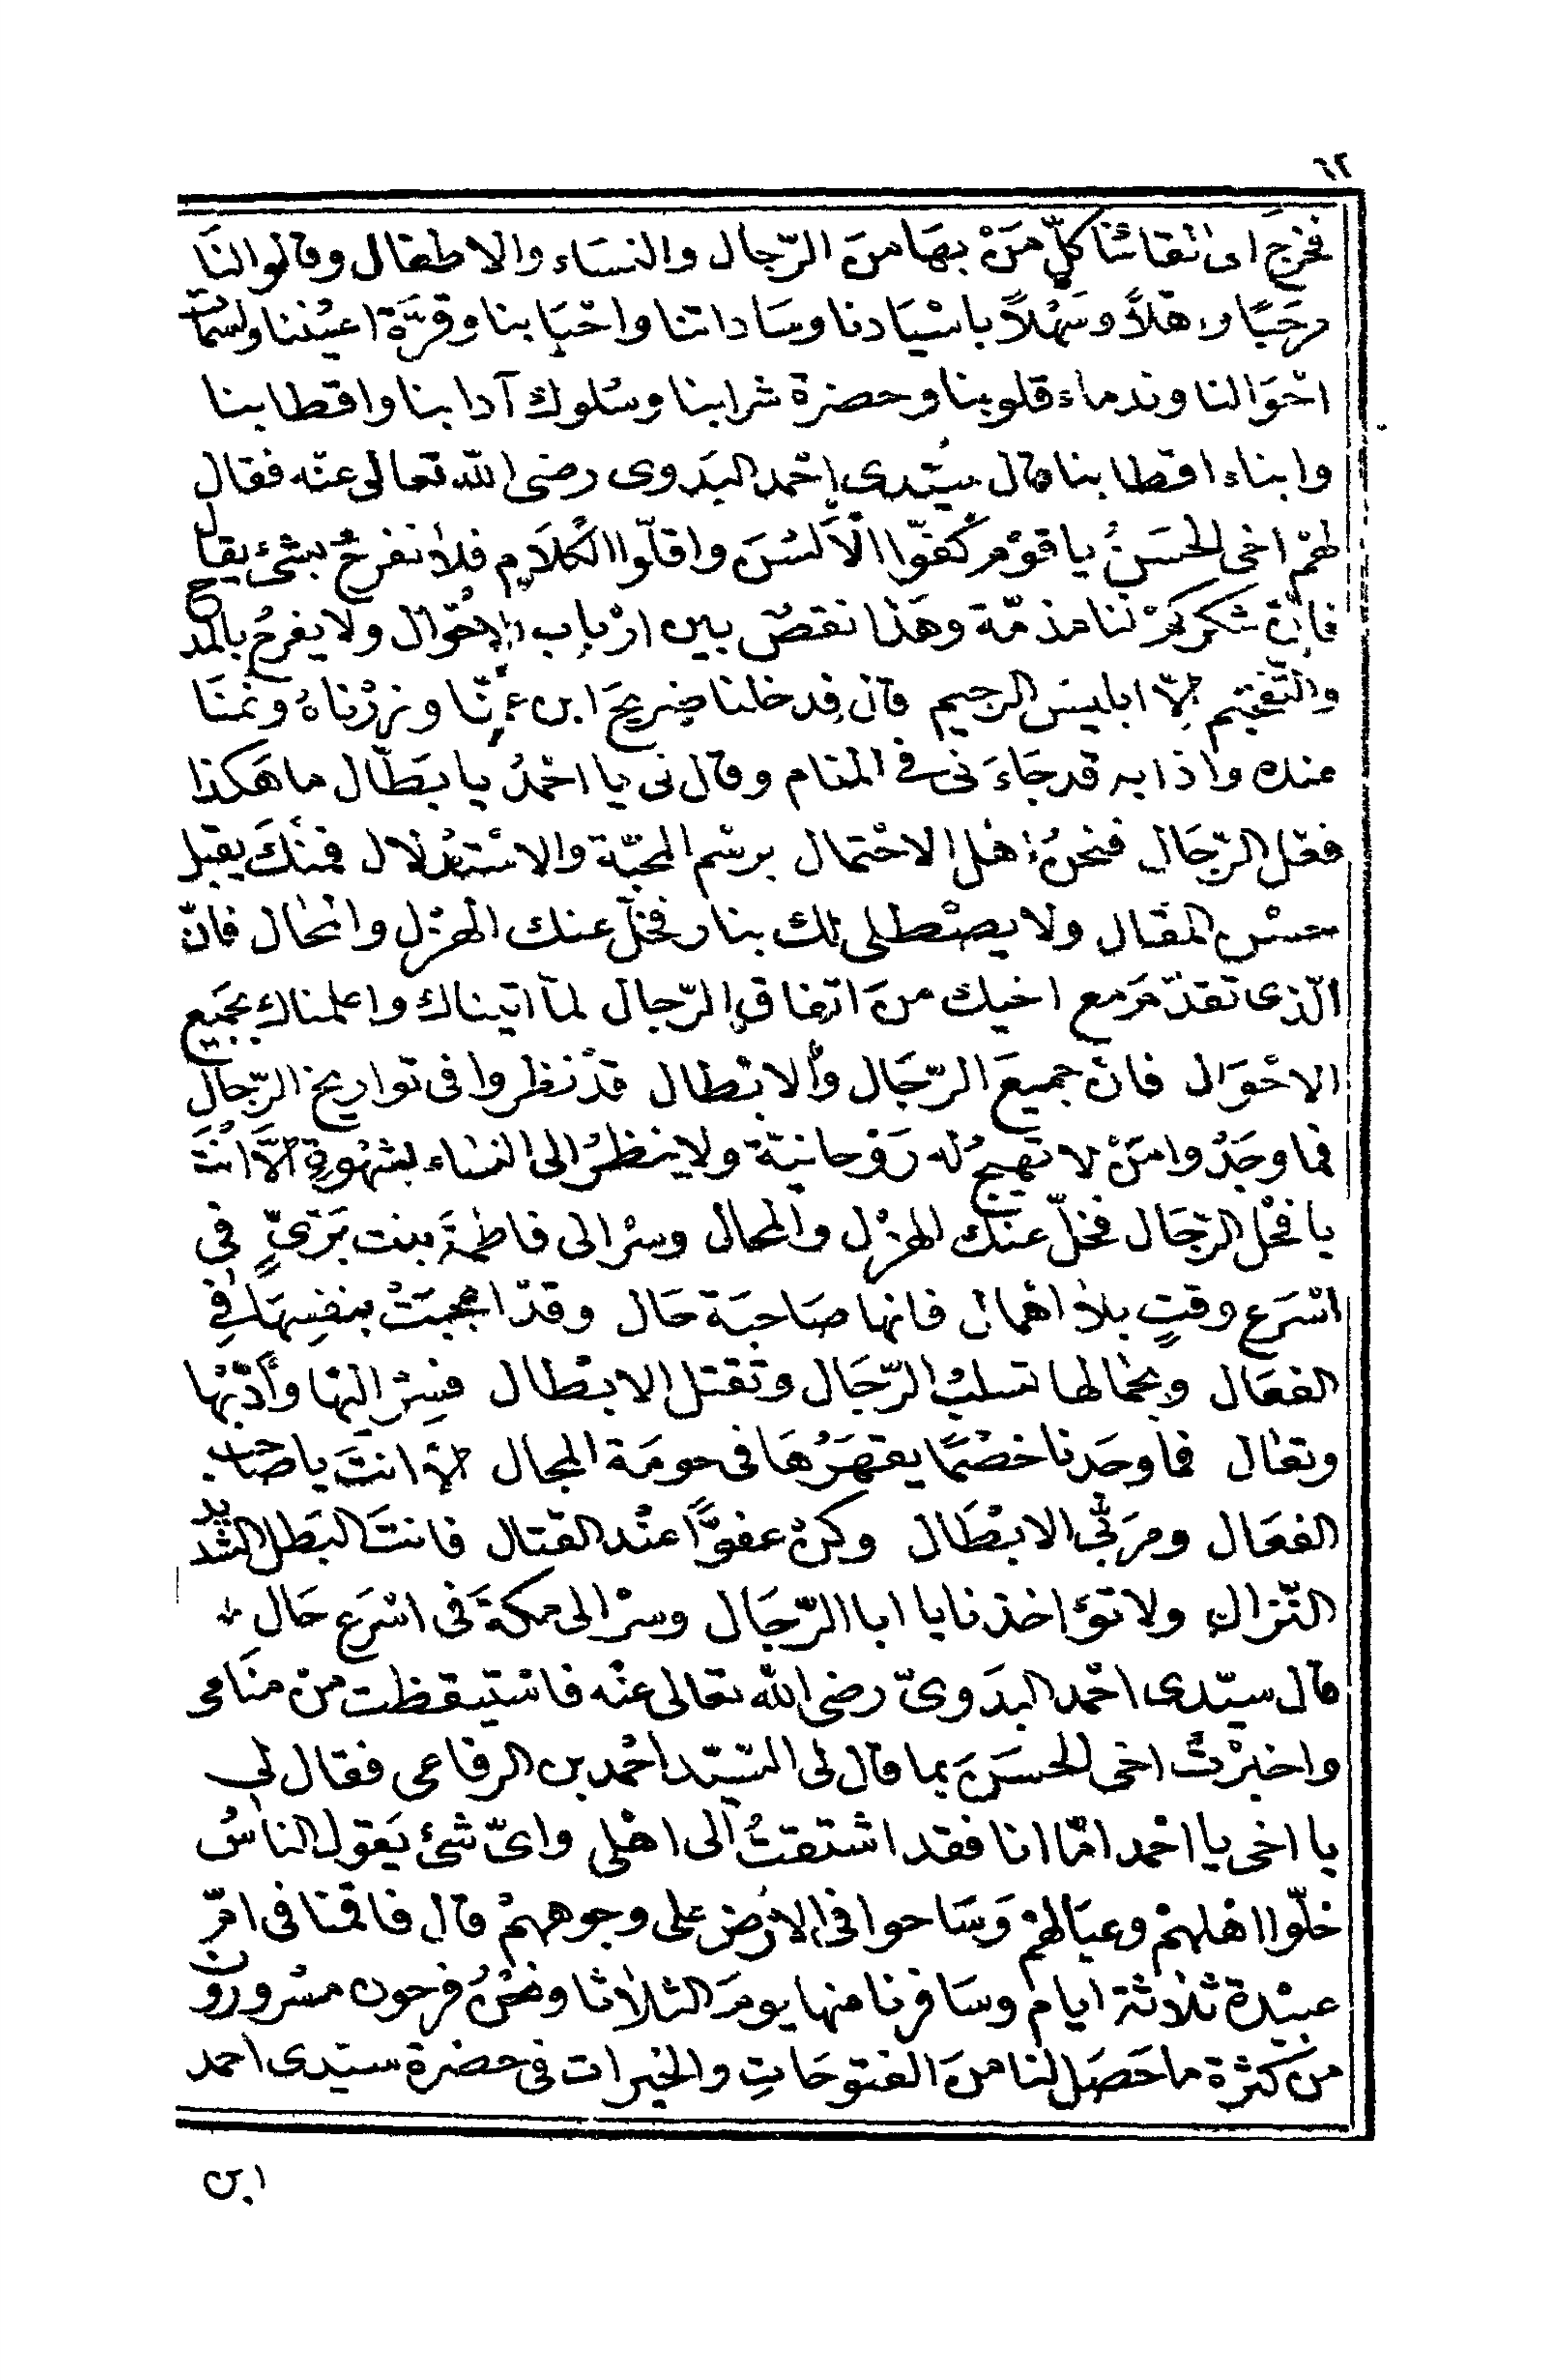 ٦٢
فخرج الى لقائنا كلّ مَنْ بهَا منَ الرّجال والنسَاء والاطفال وقالوا لنَا
مرحَبًا واهلاً وسَهْلاً باسْيَادنا وسَاداتنا واحْبَابنا وقرَّة اعيُننا ولسمات
احْوَالنا وندماء قلوبنا وحضرة شرابنا وسُلوك آدابنا واقطابنا
وابناء اقطابنا قال سيّدى احْمد البَدوى رضى اللّه تعالى عنْه فقال
لهُمْ اخى الحسَنُ يا قوْم كفّوا الْاَلسُنَ واقلّوا الْكَلَام فلا نفرحُ بشئ يقال
فانّ شكركمْ لنا مذمّة وهَذا نقصٌ بين ارْبابِ الاحْوال ولا يفرحُ بالمدح
والتّفخيم الاّ ابليسَ الرجيم قال فدخلنا ضريحَ ابن عمّنا وزرْناهُ ونمنَا
عنده واذا به قد جَاءَنى فى المنام وقال لى يا احْمدُ يا بطّال ما هَكذا
فعْل الرّجَال فنحنُ اهْل الاحْتمال برسْم المحبّة والاسْتدْلال فمنكَ يقبل
حسْن المقَال ولا يصْطلى لك بنار فخلّ عنك الهزْل والمحال فانّ
الّذى تقدّمَ مع اخيك منَ اتفاق الرّجال لمّا اتيناك واعلمناك بجَميع
الاحْوَال فانّ جميعَ الرّجَال والابْطال قدْ نظروا فى تواريخ الرّجال
فما وجَدُوا مَنْ لا تهيجُ له رَوْحانيّة ولا ينظرُ الى النسَاء بشهْوةٍ الاّ انْتَ
يا فحْل الرّجَال فخلّ عنْك الهزْل والمحال وسرْ الى فاطمَةَ بنت بَرّىٍّ فى
اسْرَع وقتٍ بلا اهْمال فانها صَاحبَة حَال وقدْ اعْجبَتْ بنفسِهَا فى
الفعَال وبجمَالها تسلبُ الرّجَال وتقتل الابْطال فسِرْ اليْها وأدّبْها
وتعَال فما وجَدنا خصْمًا يقهَرُهَا فى حومَة المجال الاّ انتَ يا صَاحب
الفعَال ومرَبّى الابْطَال وكنْ عفوًّا عنْد القتال فانتَ البَطل الشديد
النّزال ولا تؤاخذنا يا ابا الرّجَال وسرْ الى مكةَ فى اسْرَع حَال
قال سيّدى احْمد البدَوىّ رضى اللّه تعالى عنْه فاسْتيقظت منْ منَامى
واخبرْتُ اخى الحسَنَ بما قال لى السّيّد احْمد بن الرفاعى فقال لى
يا اخى يا احْمد امّا انا فقد اشتقتُ الى اهْلى واىّ شئ يَقول الناسُ
خلّوا اهْلهمْ وعيَالهمْ وَسَاحوا فى الارْض على وجوههمْ قال فاقمْنا فى امّ
عبيْدة ثلاثة ايام وسَافرنا منها يومَ الثلاثا ونحْنُ فرحون مسْرورون
منْ كثْرة ما حَصَل لنا منَ الفتوحَاتِ والخيرات فى حضرة سيّدى احمد
ابن